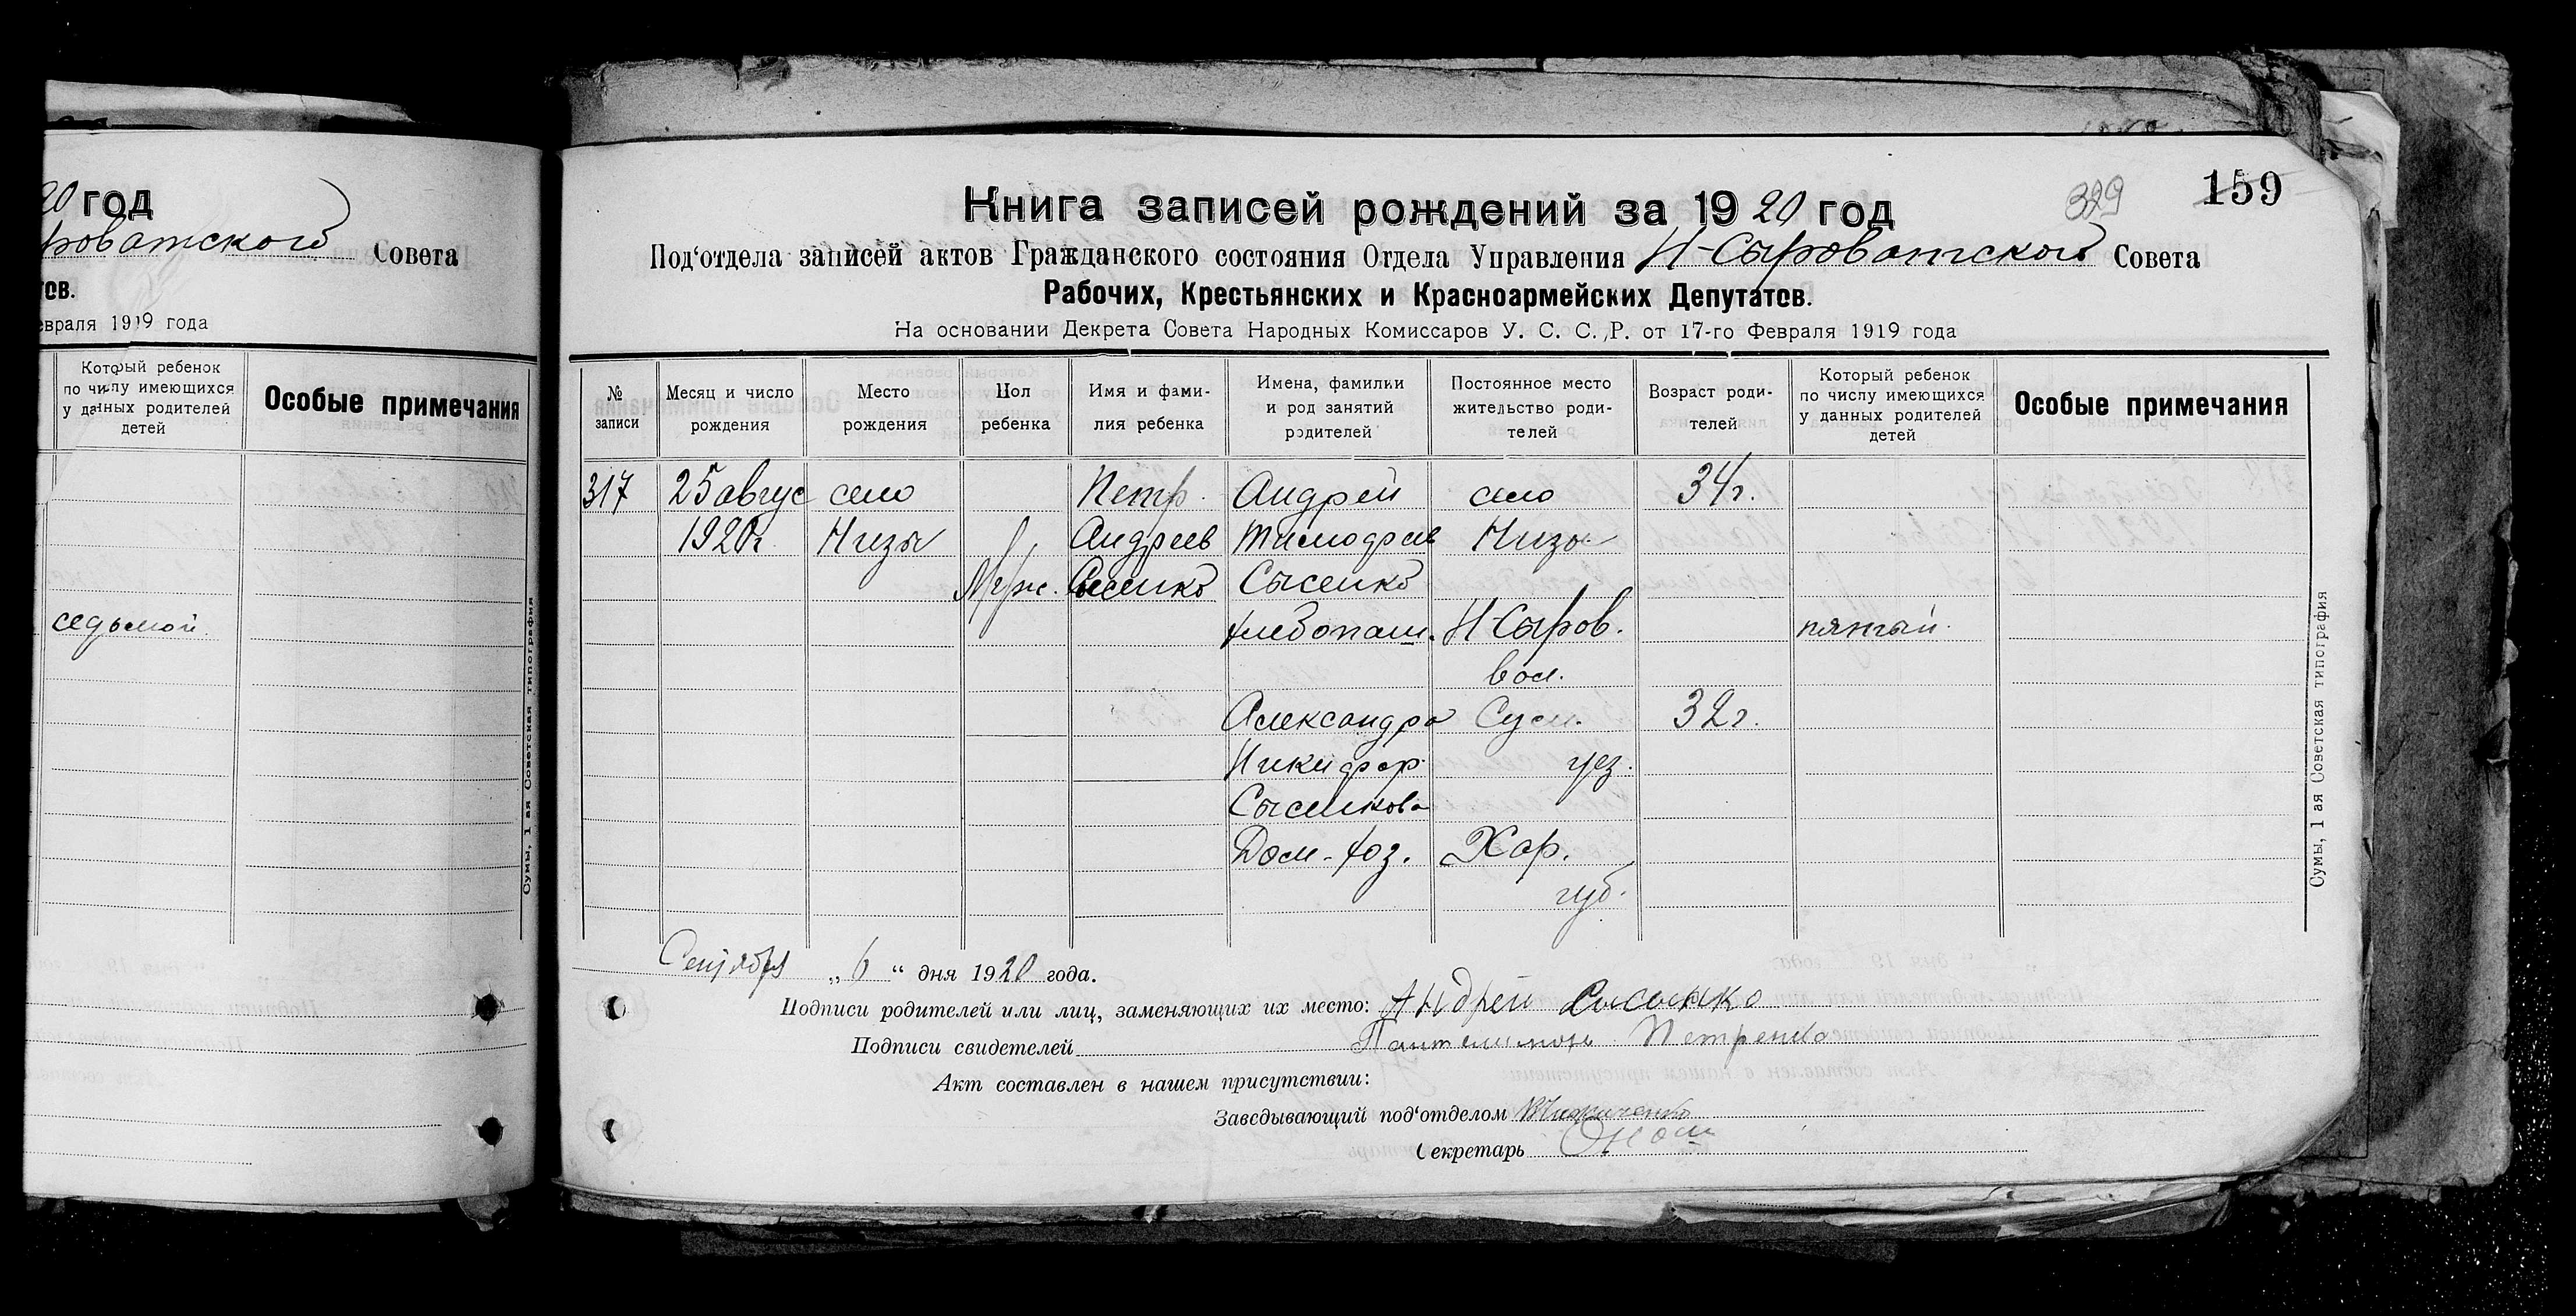 20 год
роватского Совета
тов.
евраля 1919 года
Который ребенок
по числу имеющихся
у данных родителей
детей
Особые примечания
седьмой.
Сумы, 1 ая Советская типография
329
159
Книга записей рождений за 1920 год
Под'отдела записей актов Гражданского состояния Отдела Управления Н-Сыроватского Совета
Рабочих, Крестьянских и Красноармейских Депутатов.
На основании Декрета Совета Народных Комиссаров У. С. С. Р. от 17-го Февраля 1919 года
№
записи
Месяц и число
рождения
Место
рождения
Пол
ребенка
Имя и фами-
лия ребенка
Имена, фамилии
и род занятий
родителей
Постоянное место
жительство роди-
телей
Возраст роди-
телей
Который ребенок
по числу имеющихся
у данных родителей
детей
Особые примечания
317 25 авгус село Петр. Андрей село 34 г.
1920 г. Низы Андреев Тимофеев Низы
Муж. Сысенко Сысенко
хлебопаш. Н-Сыров. пятый.
вол.
Александра Сум. 32 г.
Никифор. уез.
Сысенкова
Дом-хоз. Хар.
губ.
Сентября „6“ дня 1920 года.
Подписи родителей или лиц, заменяющих их место: Андрей Сысенко
Подписи свидетелей Пантелимон Петренко
Акт составлен в нашем присутствии:
Заведывающий под'отделом
Секретарь
Сумы, 1 ая Советская типография